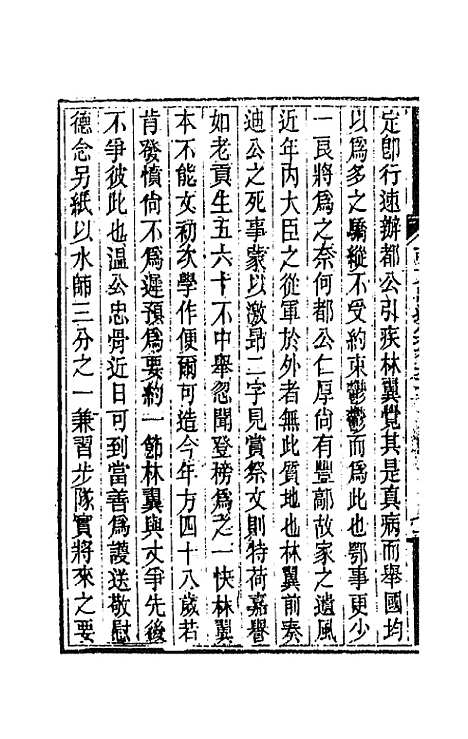 定卽行速辦都公引疾林翼覺其是真病而舉國均
以爲多之驕縱不受約束鬱鬱而爲此也鄂事更少
一良將爲之奈何都公仁厚尙有豐鄗故家之遺風
近年內大臣之從軍於外者無此質地也林翼前奏
迪公之死事蒙以激昂二字見賞祭文則特荷嘉譽
如老貢生五六十不中舉忽聞登榜爲之一快林翼
本不能文初次學作便爾可造今年方四十八歲若
肯發憤尙不爲遲預爲要約一節林翼與丈爭先後
不爭彼此也溫公忠骨近日可到當善爲護送敬慰
德念另紙以水師三分之一兼習步隊實將來之要